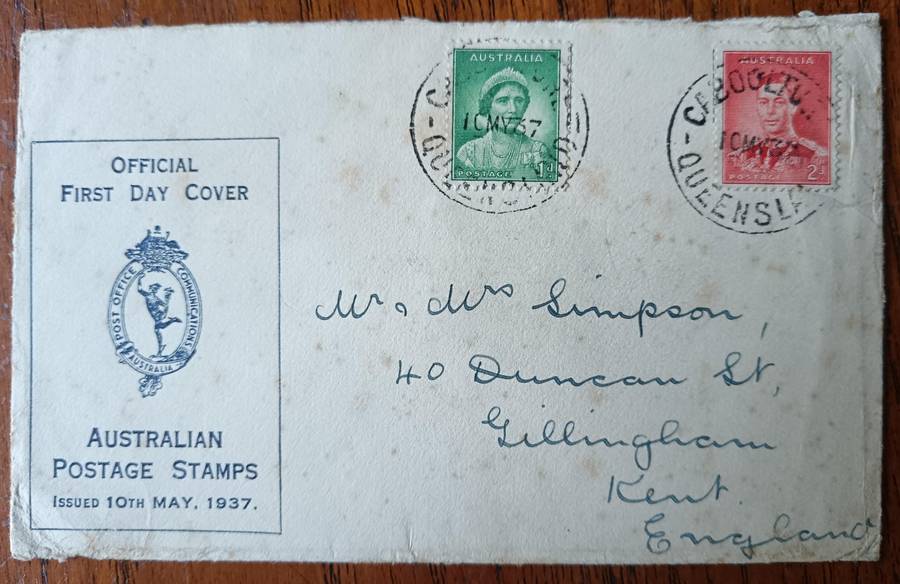 OFFICIAL
FIRST DAY COVER
POST OFFICE COMMUNICATIONS
AUSTRALIA
AUSTRALIAN
POSTAGE STAMPS
ISSUED 10TH MAY, 1937.
AUSTRALIA
10MY37
POSTAGE 1D
AUSTRALIA
CABOOLTU
10MY3
QUEENSLA
POSTAGE 2D
Mr & Mrs Simpson,
40 Duncan St,
Gillingham
Kent.
England